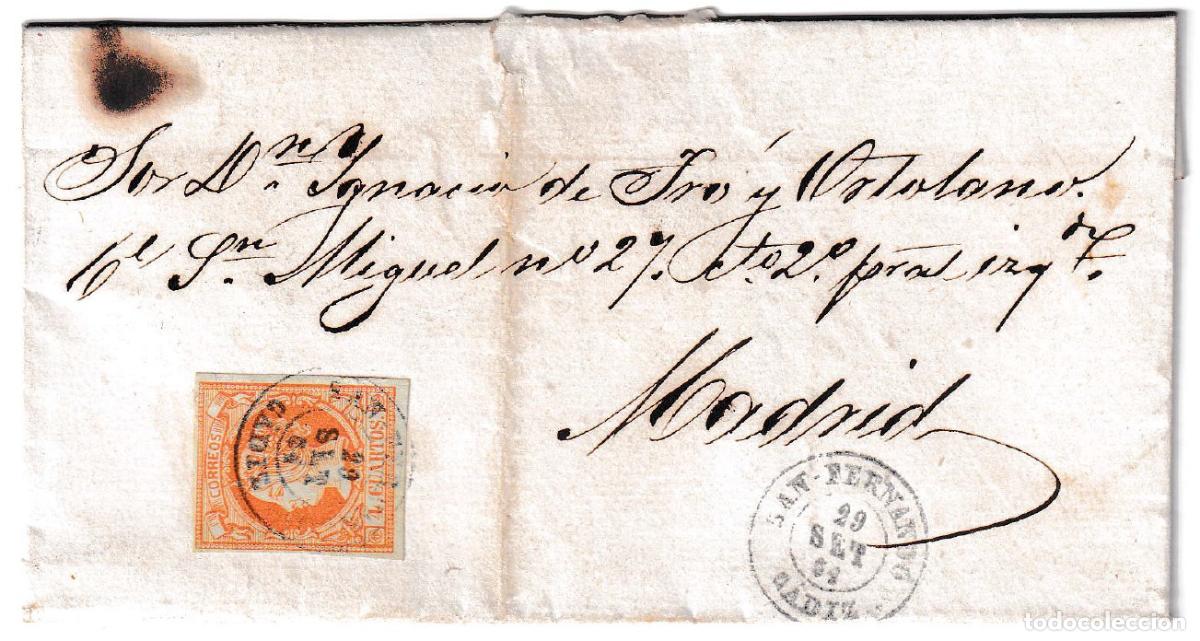 Sor Dn. Ygnacio de Yro y Ortolano.
Ce Sn. Miguel nº 27. Cto. 2º pral izqda.
Madrid
CORREOS
CUARTOS
CADIZ
SET
SAN-FERNANDO
29
SET
61
CADIZ
todocoleccion